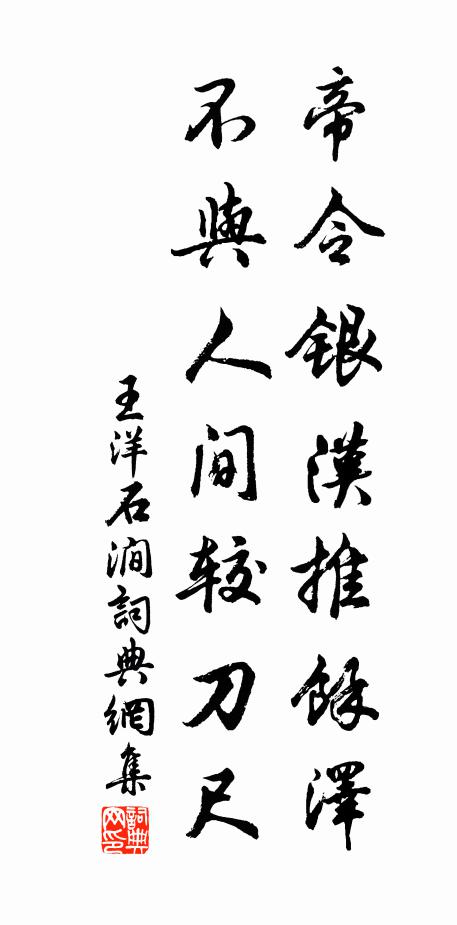 帝令銀漢推餘澤
不與人间較刀尺
王洋石澗詞典網集
詞典网印